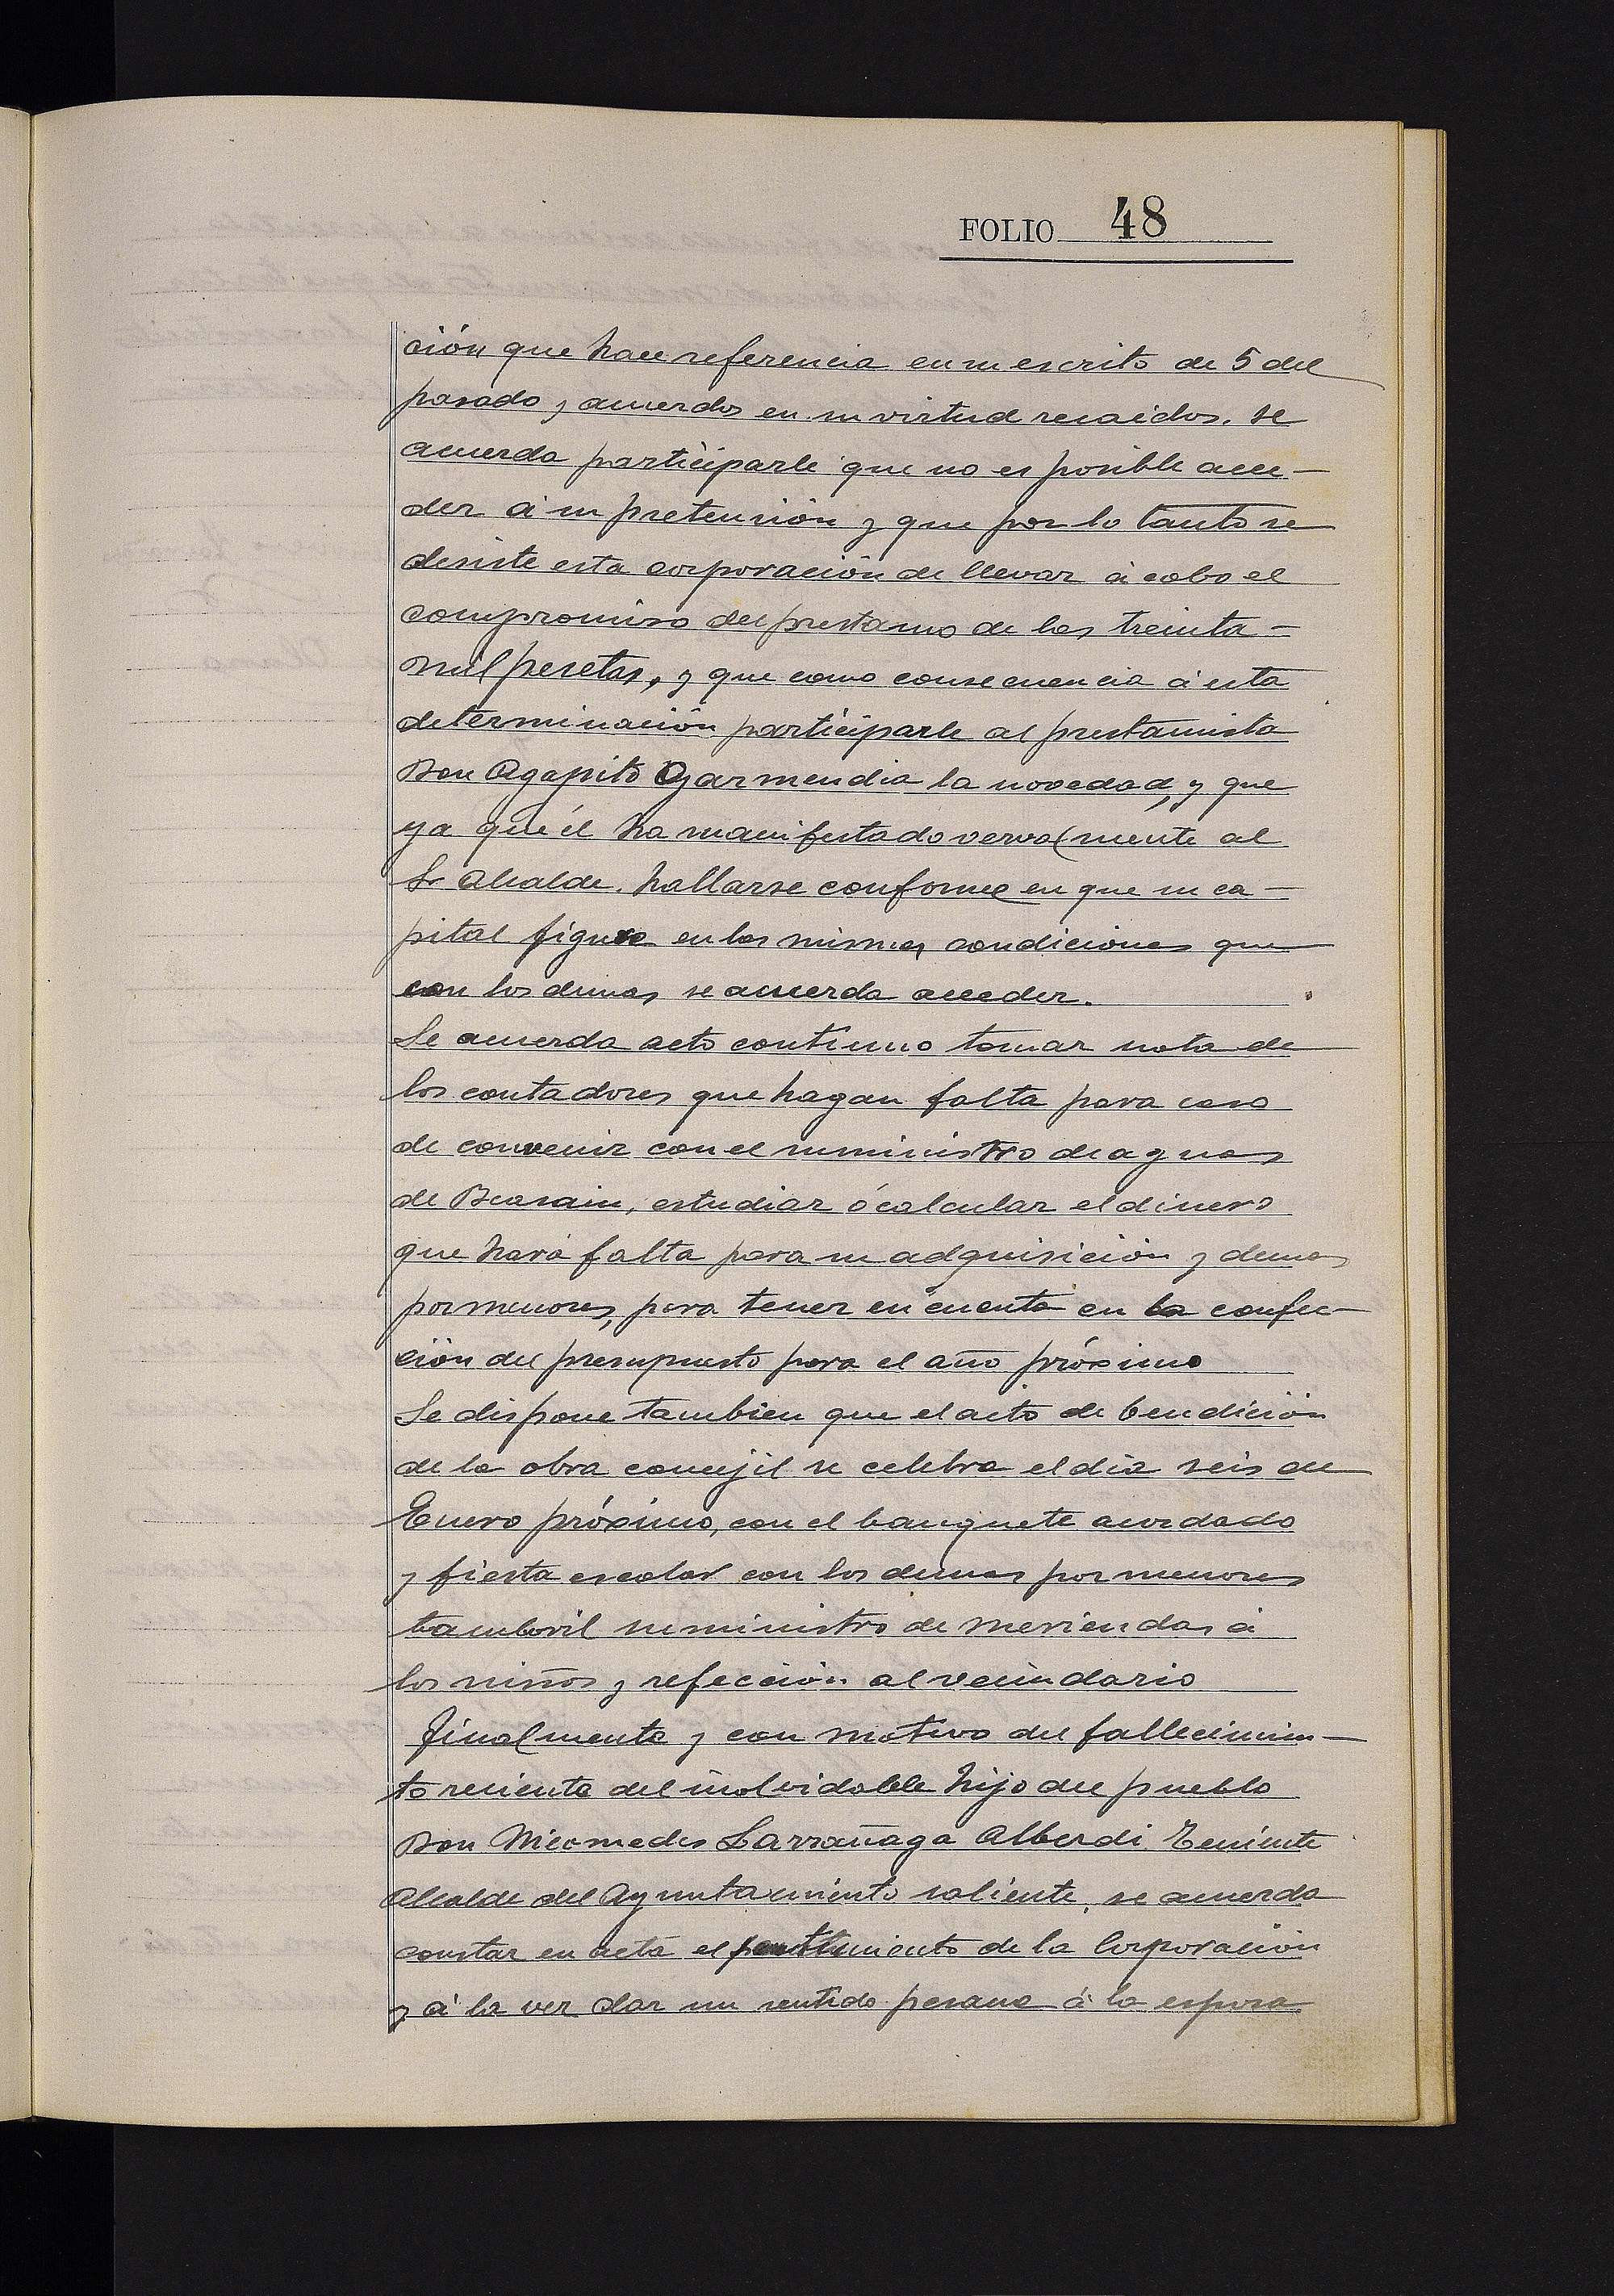 FOLIO 48
ción que hace referencia en su escrito de 5 del
pasado y acuerdos en su virtud recaidos, se
acuerda participarle que no es posible acce-
der á su pretensión y que por lo tanto se
desiste esta corporación de llevar á cabo el
compromiso del prestamo de las treinta -
mil pesetas, y que como consecuencia á esta
determinación participarle al prestamista
Don Agapito Garmendia la novedad, y que
ya que él ha manifestado vervalmente al
Sr Alcalde. hallarse conforme en que su ca-
pital figure en las mismas condiciones que
con los demas se acuerda acceder.
Se acuerda acto continuo tomar nota de
los contadores que hagan falta para caso
de convenir con el suministro de aguas
de Beasain, estudiar ó calcular el dinero
que hará falta para su adquisición y demas
pormenores, para tener en cuenta en la confec-
ción del presupuesto para el año próximo
Se dispone tambien que el acto de bendición
de la obra concejil se celebra el día seis de
Enero próximo, con el banquete acordado
y fiesta escolar con los demas pormenores
tamboril suministro de meriendas á
los niños y refección al vecindario
Finalmente y con motivo del fallecimien-
to reciente del inolvidable hijo del pueblo
Don Nicomedes Larrañaga Alberdi Teniente
Alcalde del Ayuntamiento saliente, se acuerda
constar en acta el sentimiento de la Corporación
y á la vez dar un sentido pesame á la esposa